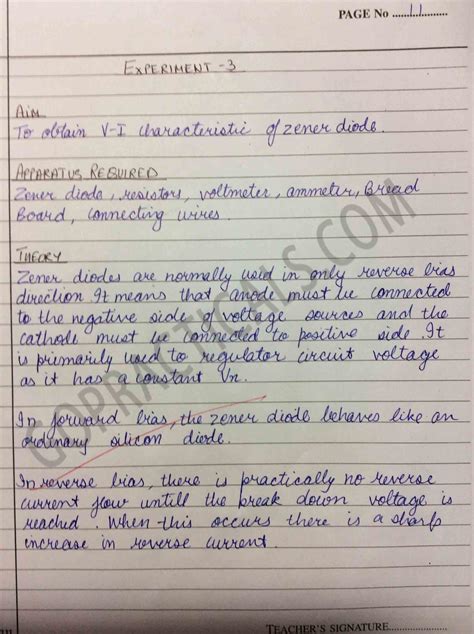 PAGE No ............11............
EXPERIMENT - 3
Aim
To obtain V-I characteristic of zener diode.
APPARATUS REQUIRED
Zener diode, resistors, voltmeter, ammeter, Bread
Board, connecting wires.
THEORY
Zener diodes are normally used in only reverse bias
direction. It means that anode must be connected
to the negative side of voltage sources and the
cathode must be connected to positive side. It
is primarily used to regulator circuit voltage
as it has a constant VR.
In forward bias, the zener diode behaves like an
ordinary silicon diode.
In reverse bias, there is practically no reverse
current flow untill the break down voltage is
reached. When this occurs there is a sharp
increase in reverse current.
TEACHER'S SIGNATURE........................
GOPRACTICALS.COM